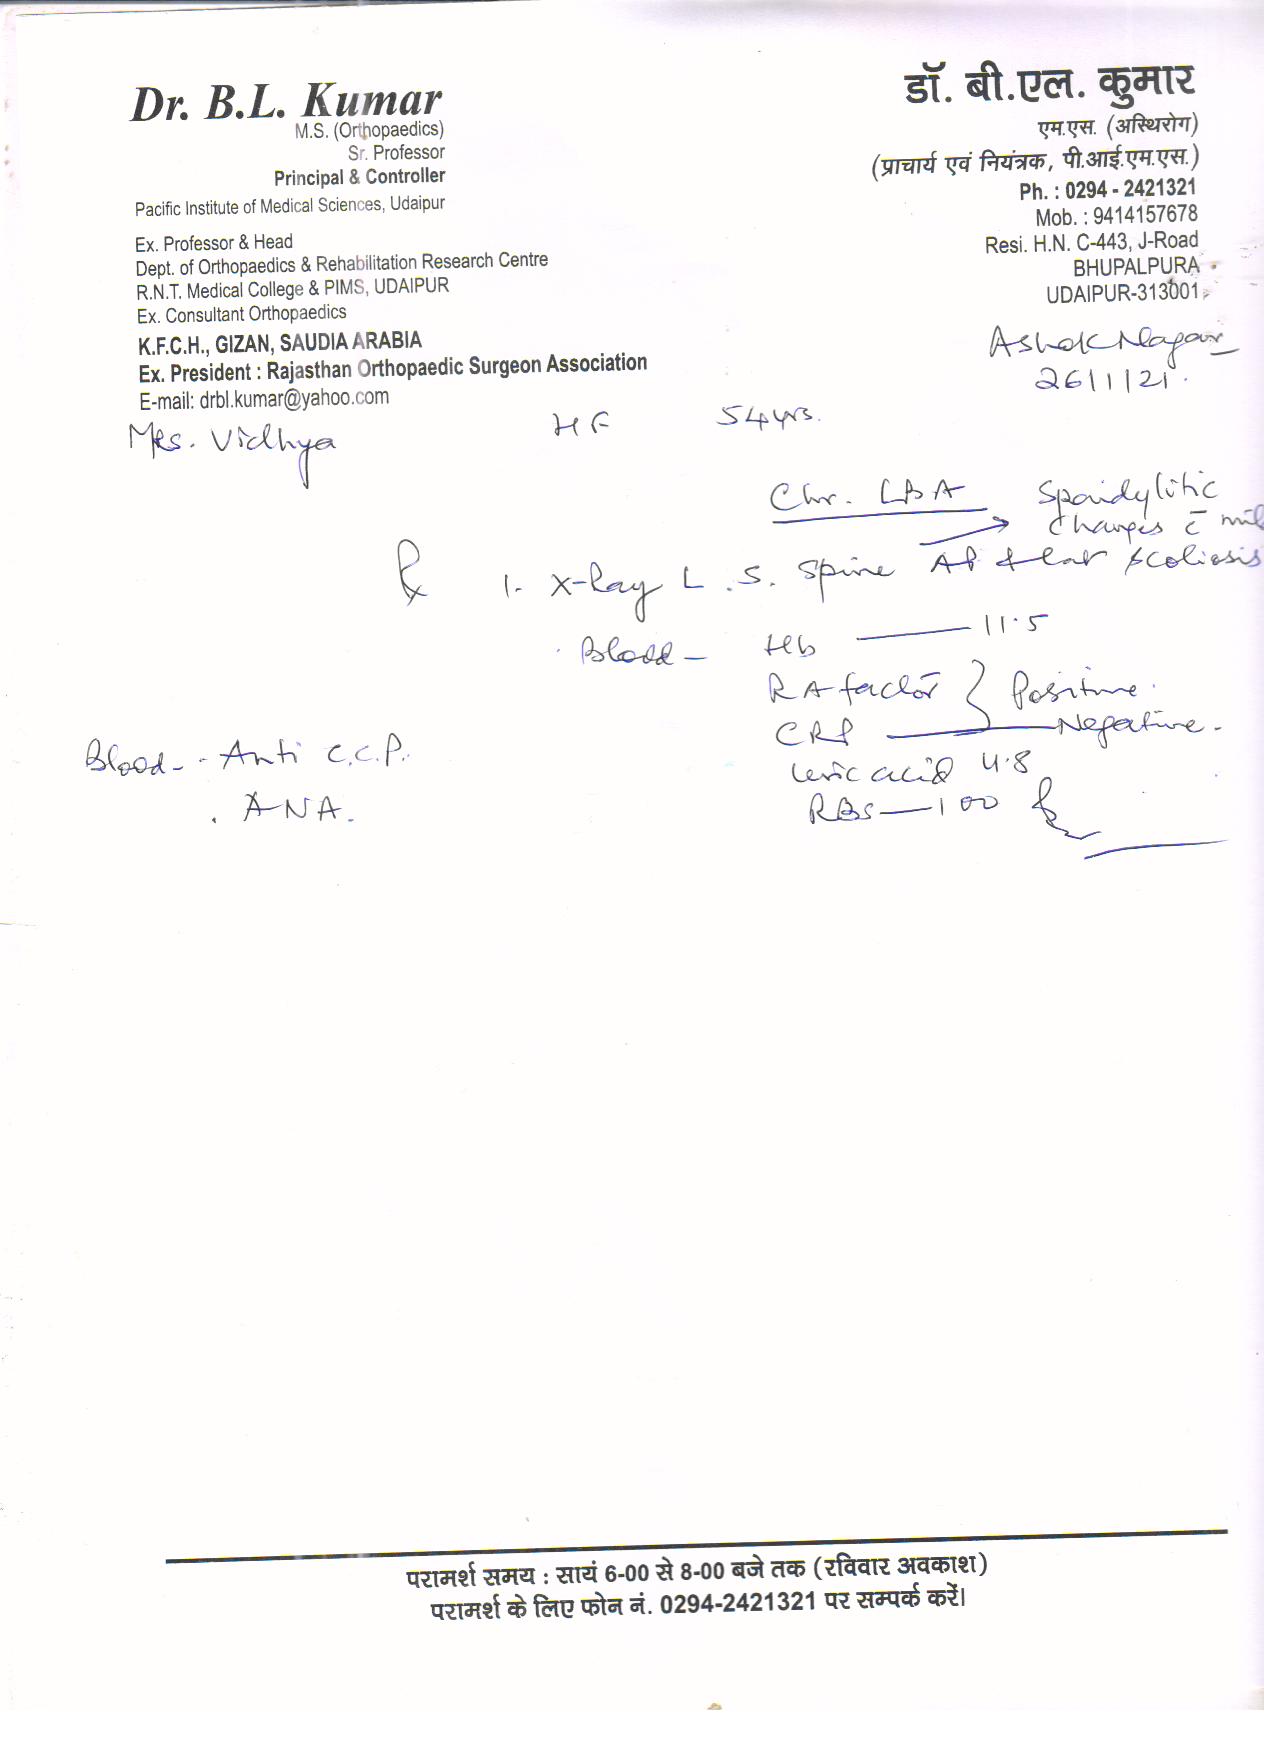 Dr. B.L. Kumar
M.S. (Orthopaedics)
Sr. Professor
Principal & Controller
Pacific Institute of Medical Sciences, Udaipur
Ex. Professor & Head
Dept. of Orthopaedics & Rehabilitation Research Centre
R.N.T. Medical College & PIMS, UDAIPUR
Ex. Consultant Orthopaedics
K.F.C.H., GIZAN, SAUDIA ARABIA
Ex. President : Rajasthan Orthopaedic Surgeon Association
E-mail: drbl.kumar@yahoo.com
डॉ. बी.एल. कुमार
एम.एस. (अस्थिरोग)
(प्राचार्य एवं नियंत्रक, पी.आई.एम.एस.)
Ph. : 0294 - 2421321
Mob. : 9414157678
Resi. H.N. C-443, J-Road
BHUPALPURA
UDAIPUR-313001
Ashok Nagar
26/1/21.
Mrs. Vidhya HF 54yrs.
Chr. LBA
Spondylitic
changes c̄ mil
scoliosis
℞ 1. X-Ray L.S. Spine AP & Lat
Blood - Hb — 11.5
RA factor } Positive.
CRP — Negative.
Uric acid 4.8
RBS — 100
Blood - . Anti C.C.P.
. ANA.
परामर्श समय : सायं 6-00 से 8-00 बजे तक (रविवार अवकाश)
परामर्श के लिए फोन नं. 0294-2421321 पर सम्पर्क करें।